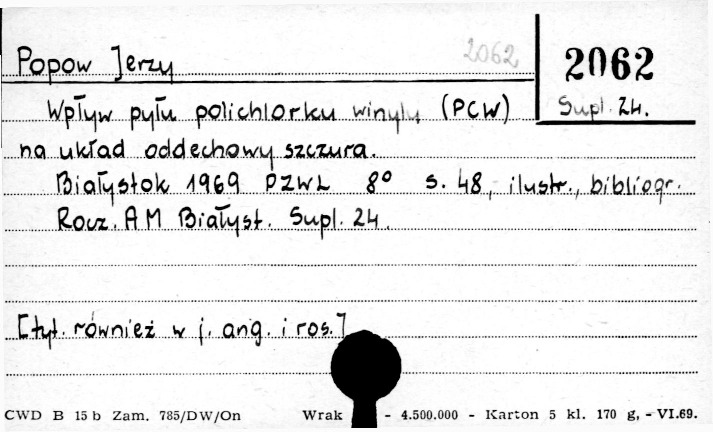 Popow Jerzy 2062 2062
Wpływ pyłu polichlorku winylu (PCW) Supl. 24.
na układ oddechowy szczura.
Białystok 1969 PZWL 8° s. 48, ilustr., bibliogr.
Rocz. AM Białyst. Supl. 24.
[tyt. również w j. ang. i ros.]
CWD B 15 b Zam. 785/DW/On Wrak - 4.500.000 - Karton 5 kl. 170 g, - VI.69.